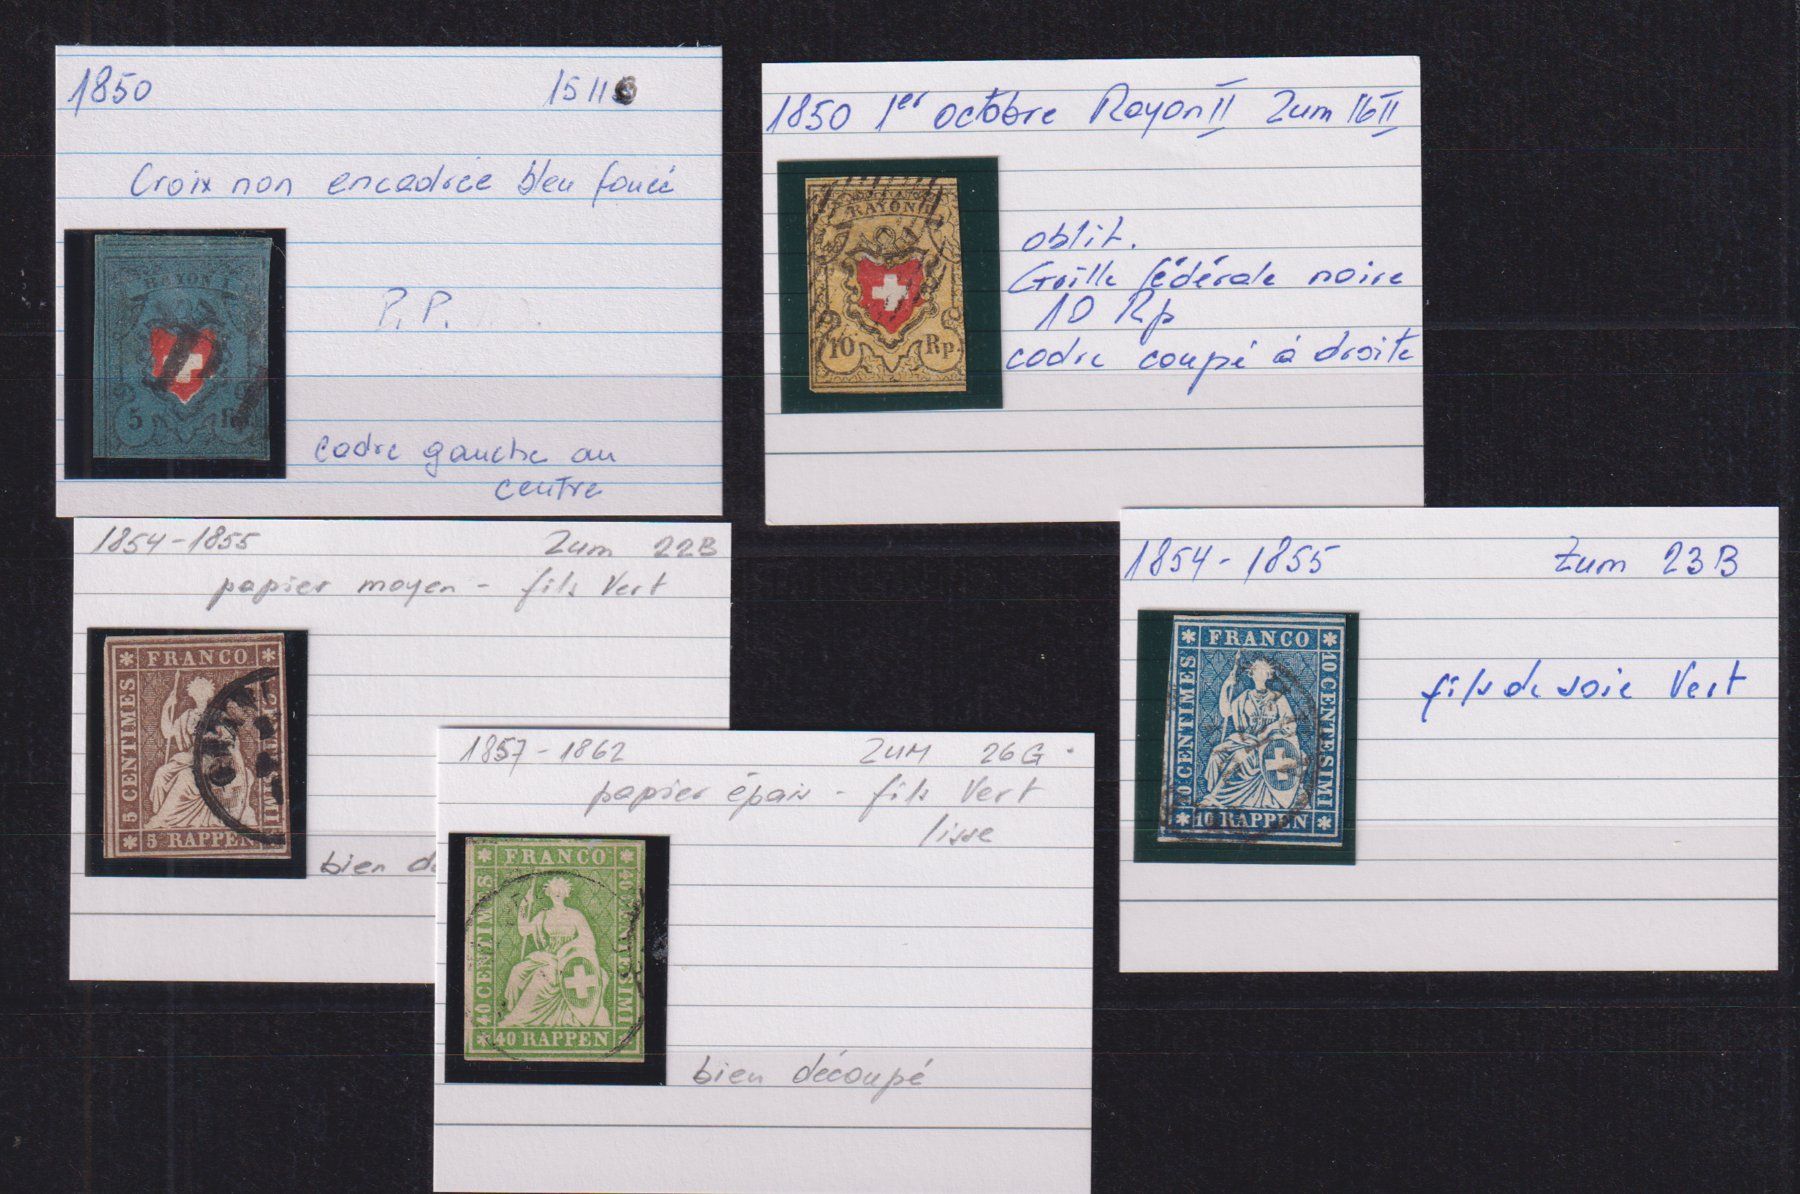 1850 15II
Croix non encadrée bleu foncé
RAYON I
5 Rp.
P.P.
cadre gauche au
centre
1850 1er octobre Rayon II Zum 16II
RAYON II
10 Rp.
oblit.
Grille fédérale noire
10 Rp
cadre coupé à droite
1854-1855 Zum 22B
papier moyen - fils Vert
FRANCO
5 CENTIMES
5 RAPPEN
bien
1854-1855 Zum 23B
FRANCO
10 CENTIMES
10 CENTESIMI
10 RAPPEN
fils de soie Vert
1857-1862 ZUM 26G.
papier épais - fils Vert
lisse
FRANCO
40 CENTIMES
40 CENTESIMI
40 RAPPEN
bien découpé